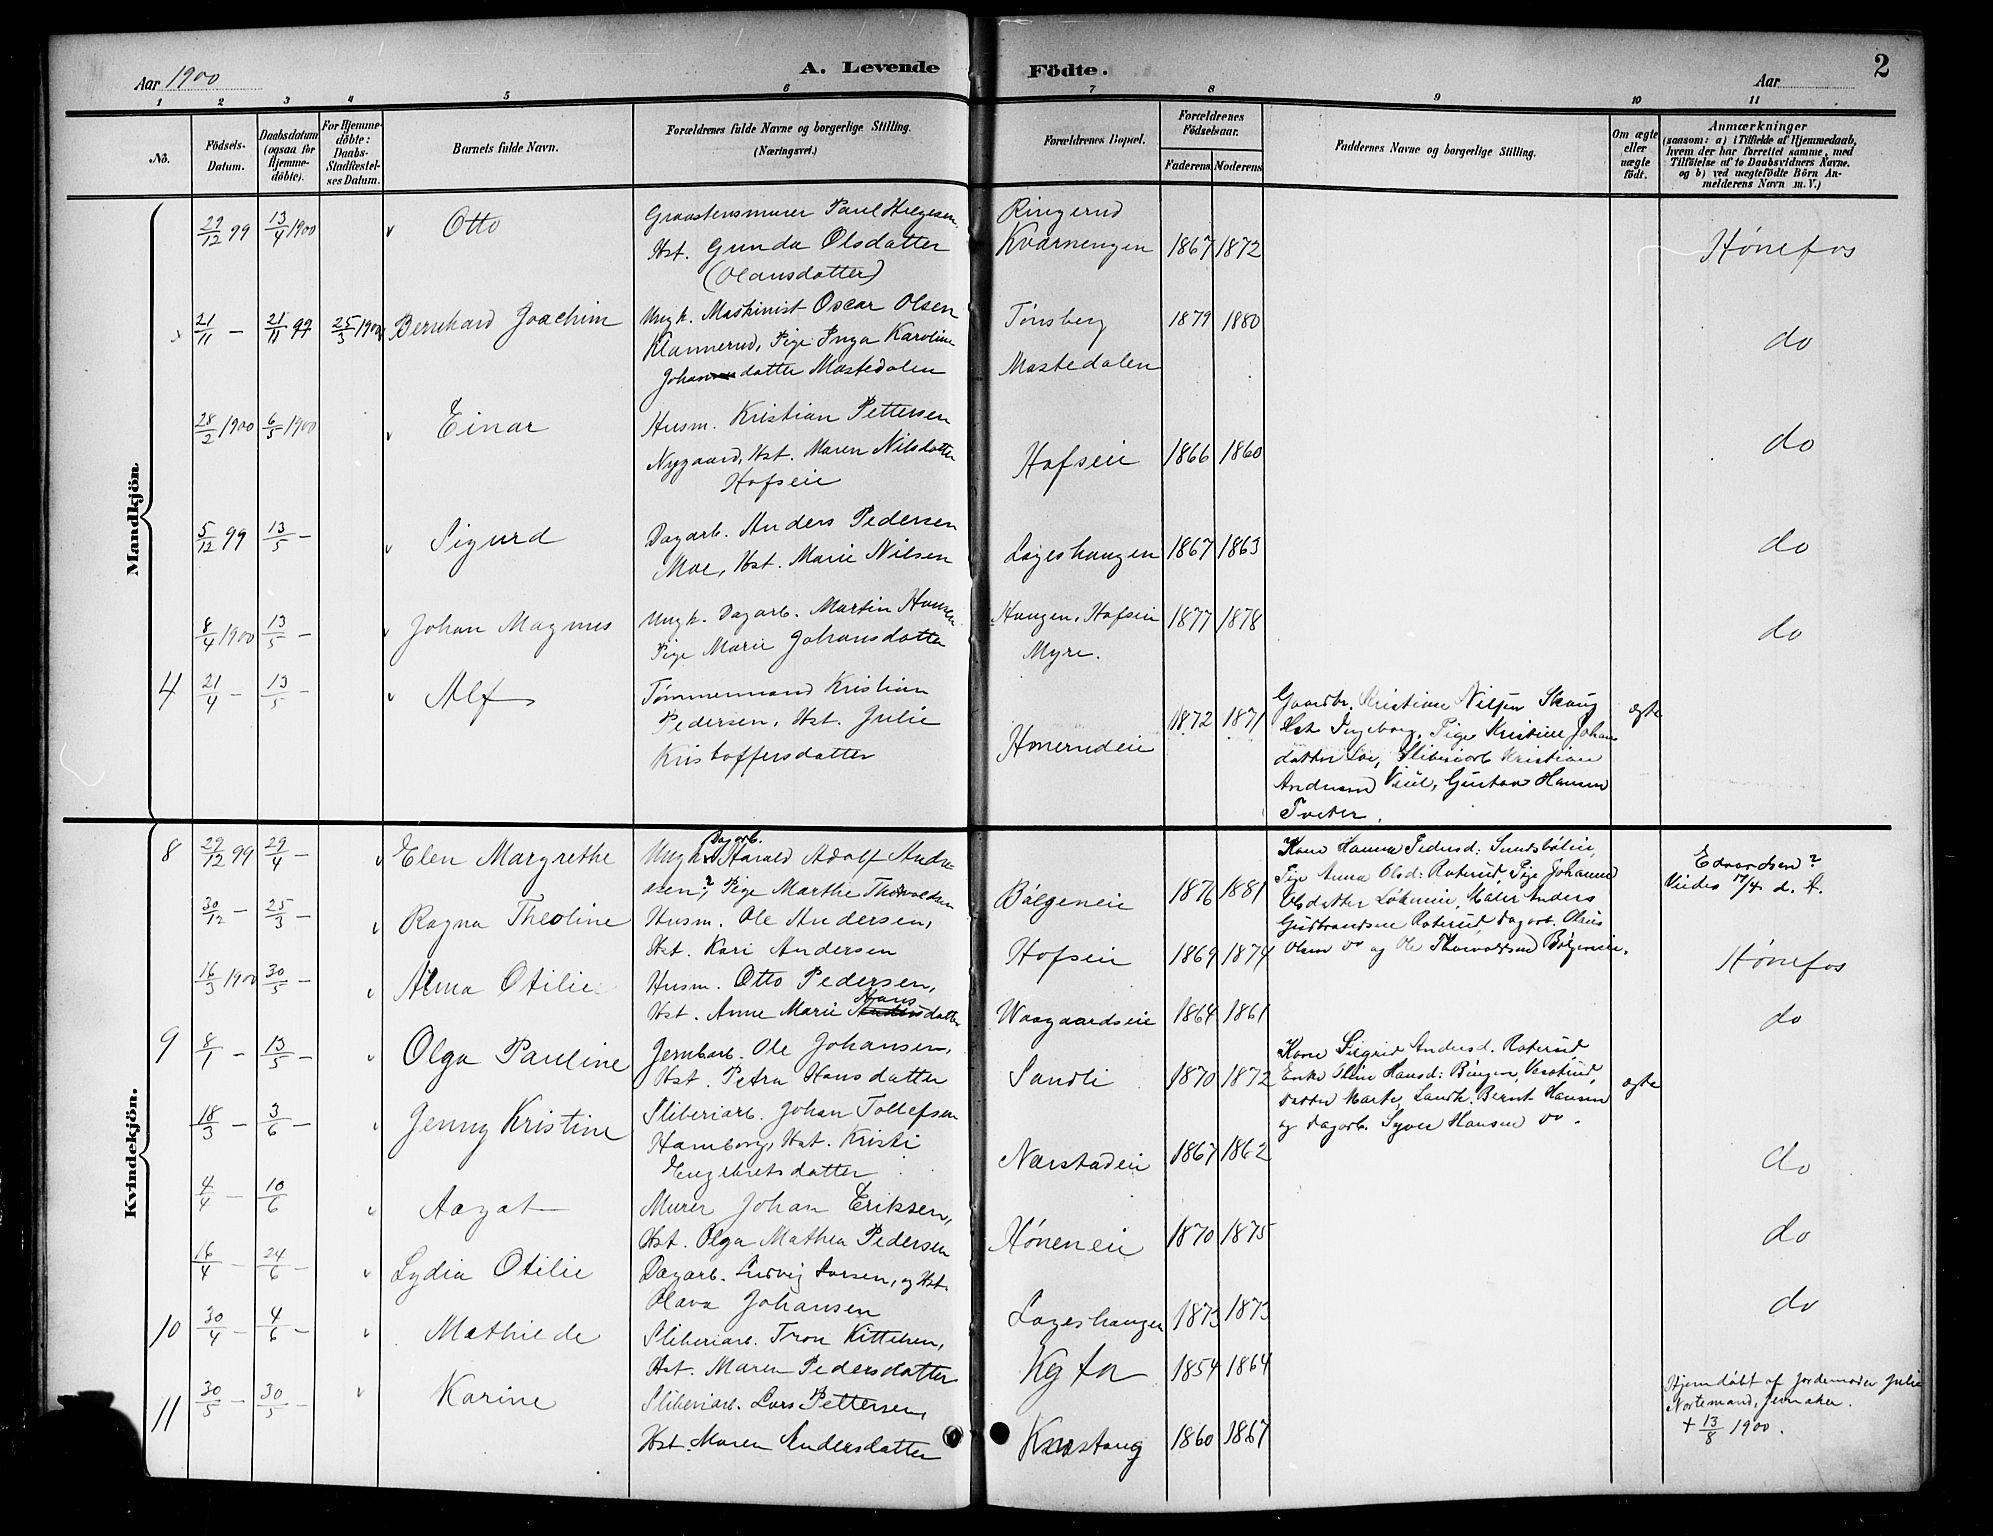 Aar 1900
A. Levende Födte.
Aar
2
1 2 3 4 5 6 7 8 9 10 11
No.
Födsels-Datum.
Daabsdatum (ogsaa for Hjemme-döbte).
For Hjemme-döbte: Daabs-Stadfæstel-ses Datum.
Barnets fulde Navn.
Forældrenes fulde Navne og borgerlige Stilling. (Næringsvei.)
Forældrenes Bopæl.
Forældrenes Födselsaar.
Faderens. Moderens.
Faddernes Navne og borgerlige Stilling.
Om ægte eller uægte födt.
Anmærkninger
(saasom: a) i Tilfælde af Hjemmedaab,
hvem der har forrettet samme, med
Tilföielse af to Daabsvidners Navne,
og b) ved uægtefödte Börn An-
melderens Navn m. V.)
Mandkjön.
29/12 99 13/4 1900 v Otto
Graastensmurer Paul Helgesen
Hst. Gunda Olsdatter
(Olausdatter)
Ringerud
Kvarnengen 1867 1872 Hønefos
x 21/11 - 21/11 99 25/3 1900 Bernhard Joachim
Ungk. Maskinist Oscar Olsen
Klannerud, Pige Inga Karoline
Johannesdatter Mastedalen
Tønsberg 1879 1880
Mastedalen
do
28/2 1900 6/5 1900 v Einar
Husm. Kristian Pettersen
Nygaard, Hst. Maren Nilsdatter
Hofseie
Hofseie 1866 1860 do
5/12 99 13/5 - v Sigurd
Dagarb. Anders Pedersen
Moe, Hst. Marie Nilsen
Lageshaugen 1867 1863 do
8/4 1900 13/5 - v Johan Magnus
Ungk. Dagarb. Martin Hansen
Pige Marie Johansdatter
Haugen, Hofseie 1877 1878
Myre.
do
4 21/4 - 13/5 - v Alf
Tømmermand Kristian
Pedersen, Hst. Julie
Kristoffersdatter
Hønerudeie 1872 1871
Gaardbr. Kristian Nilsen Skaug
Hst Ingeborg, Pige Kristine Johans
datter Loe, Sliberiarb Kristian
Andersen Vaul, Gustav Hansen
Tveter.
ægte
Kvindekjön.
8 29/12 99 29/4 - v Elen Margrethe
Ungk. Dagarb. Harald Adolf Andre-
asen,? Pige Marthe Thorvaldsen
Bølgeneie 1876 1881
Kone Hanna Pedersd: Sundbøleie,
Pige Anna Olsd: Roterud, Pige Johanne
Olsdatter Løkeneie, Maler Anders
Gudbrandsen Roterud, Dagarb. Olaus
Olsen do og Ole Thorvaldsen Bølgeneie.
Edvardsen?
Viedes 17/4 d. A.
30/12 - 25/3 - v Ragna Theoline
Husm. Ole Andersen,
Hst. Kari Andersen
Hofseie 1869 1874 Hønefos
16/3 1900 30/5 - v Alma Otilie
Husm. Otto Pedersen,
Hst. Anne Marie Anders Hans datter
Waagaardseie 1864 1861 do
9 8/1 - 13/5 - v Olga Pauline
Jernbarb. Ole Johansen,
Hst. Petra Hansdatter
Sandli 1870 1872
Kone Sigrid Andersd. Roterud,
Enke Eline Hansd: Bingen,
datter Marte, Landh. Bernt Hansen
og Dagarb. Syver Hansen do.
ægte
18/3 - 3/6 - v Jenny Kristine
Sliberiarb. Johan Tollefsen
Hamborg, Hst. Kristi
Engebretsdatter
Nærstadeie 1867 1862 do
4/4 - 10/6 v Aagot
Murer Johan Eriksen,
Hst. Olga Mathea Pedersen
Høneneie 1870 1875 do
16/4 - 24/6 - v Lydia Otilie
Dagarb. Ludvig Larsen, og Hst.
Olava Johansen
Lageshaugen 1873 1873 do
10 30/4 - 4/6 - v Mathilde
Sliberiarb. Tron Kittelsen,
Hst. Maren Pedersdatter
1854 1864
11 30/5 - 30/5 - v Karine
Sliberiarb. Lars Pettersen,
Hst. Maren Andersdatter
1860 1867
Hjemdøbt af Jordemoder Julie
Nortemand, Jevnaker.
+ 13/8 1900.